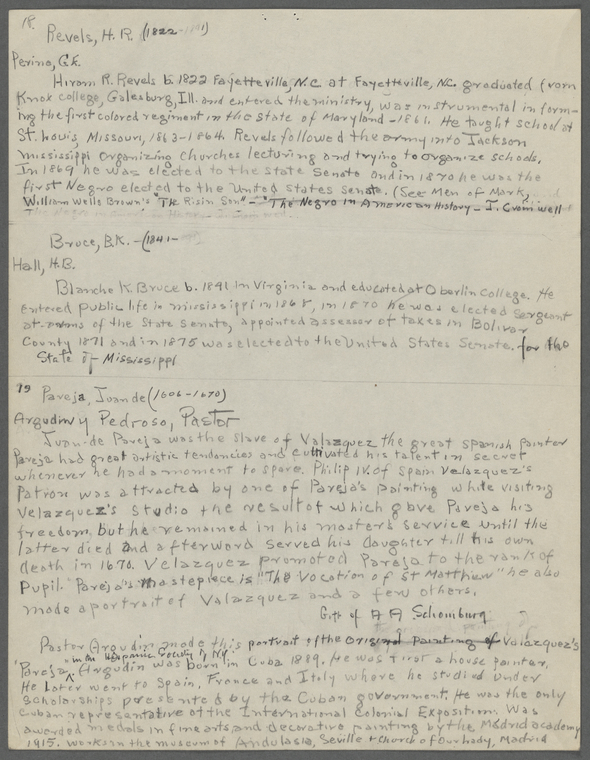 18.
Revels, H. R. (1822-
Perino, Gk.
Hiram R. Revels b. 1822 Fayetteville, N.C. at Fayetteville, N.C. graduated from
Knox College, Galesburg, Ill. and entered the ministry, was instrumental in form-
ing the first colored regiment in the State of Maryland - 1861. He taught school at
St. Louis, Missouri, 1863-1864. Revels followed the army into Jackson
Mississippi organizing churches lecturing and trying to organize schools.
In 1869 he was elected to the State Senate and in 1870 he was the
first Negro elected to the United States Senate. (See Men of Mark,
William Wells Brown's "The Risin Son" - "The Negro in American History - J. Cromwell
Bruce, B.K. - (1841-
Hall, H.B.
Blanche K. Bruce b. 1841 in Virginia and educated at Oberlin College. He
entered public life in Mississippi in 1868, in 1870 he was elected Sergeant
at-arms of the State Senate, appointed assessor of taxes in Bolivar
County 1871 and in 1875 was elected to the United States Senate. for the
State of Mississippi
19 Pareja, Juan de (1606-1670)
Argudin y Pedroso, Pastor
Juan de Pareja was the slave of Valazquez the great Spanish painter
Pareja had great artistic tendencies and cultivated his talent in secret
whenever he had a moment to spare. Philip IV. of Spain Velazquez's
Patron was attracted by one of Pareja's painting while visiting
Velazquez's Studio the result of which gave Pareja his
freedom, but he remained in his master's service until the
latter died and afterword served his daughter till his own
death in 1670. Velazquez promoted Pareja to the rank of
Pupil. Pareja's Mastepiece is "The Vocation of St Matthew" he also
made a portrait of Valazquez and a few others.
Gift of A A Schomburg
Pastor Argudin made this portrait of the Original painting of Valazquez's
"Pareja" in the Hispanic Society of N.Y. Argudin was born in Cuba 1889. He was first a house painter.
He later went to Spain, France and Italy where he studied under
scholarships presented by the Cuban government. He was the only
Cuban representative of the International Colonial Exposition. Was
awarded medals in fine arts, and decorative painting by the Madrid academy
1915. works in the museum of Andulasia, Seville + Church of Our Lady, Madrid